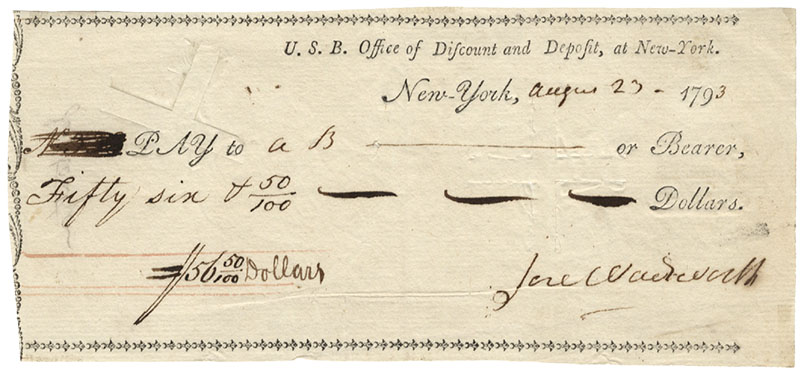 U. S. B. Office of Discount and Deposit, at New-York.
New-York, augus 23 - 1793
PAY to a B or Bearer,
Fifty six & 50/100 Dollars.
56 50/100 Dollars
Jere Wadsworth